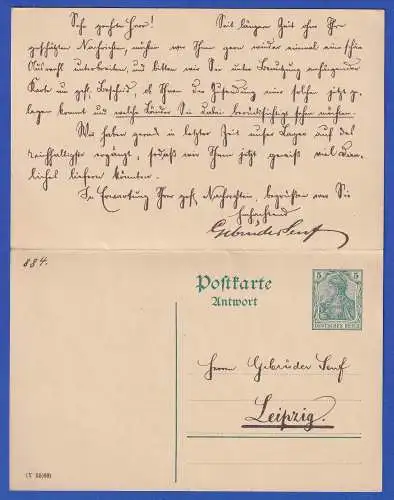 Sehr geehrter Herr! Seit längerer Zeit ohne Ihre
geschätzten Nachrichten, möchten wir Ihnen gern wieder einmal eine schöne
Auswahl unterbreiten, und bitten wir Sie unter Benutzung anhängender
Karte um gefl. Bescheid, ob Ihnen die Zusendung einer solchen jetzt ge-
legen kommt und welche Länder Sie dabei berücksichtigt sehen möchten.
Wir haben gerade in letzter Zeit unser Lager auf das
reichhaltigste ergänzt, sodaß wir Ihnen jetzt gewiß viel Dien-
liches liefern könnten.
In Erwartung Ihrer gefl. Nachrichten, begrüßen wir Sie
hochachtend
Gebrüder Senf
884.
Postkarte
Antwort
5 5
DEUTSCHES REICH
Herren Gebrüder Senf
Leipzig.